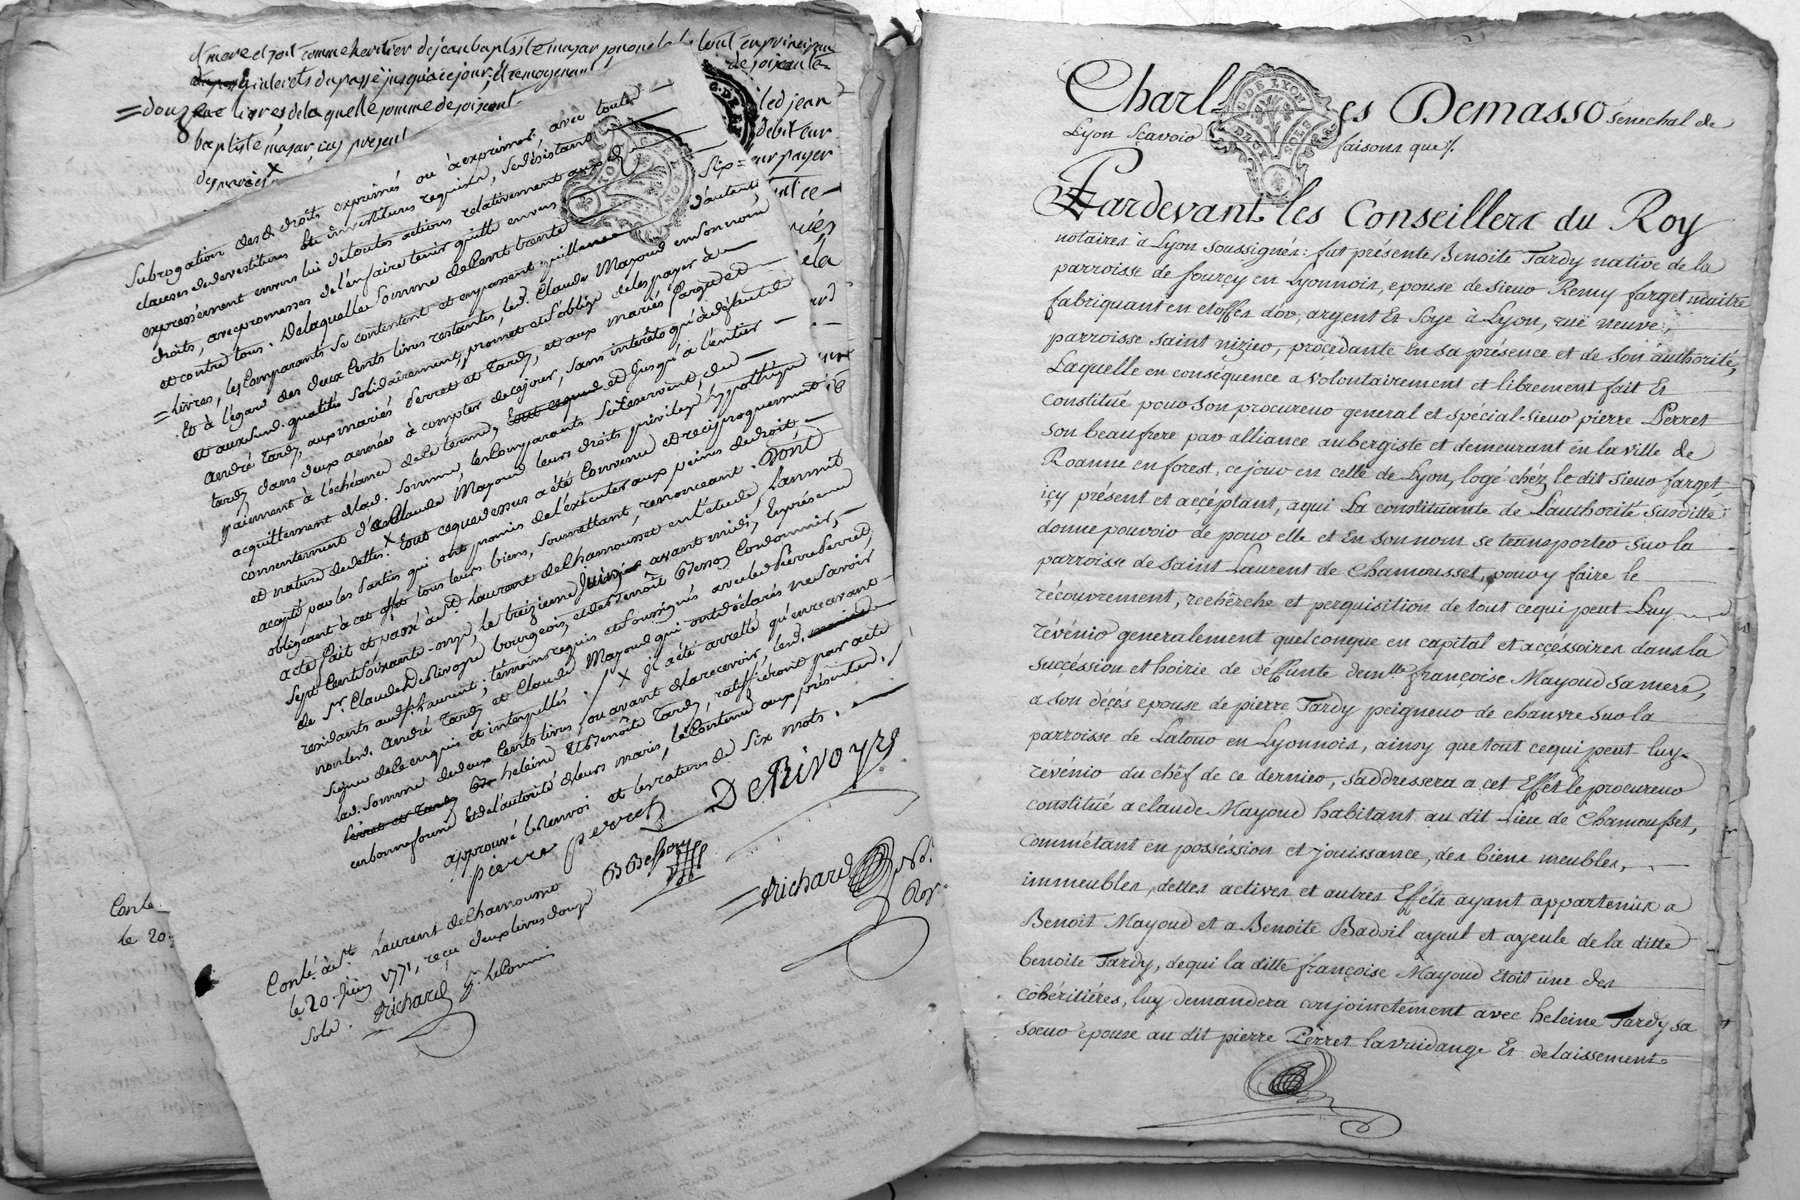 d'mere et droit comme heritier de jean baptiste
interets du passé jusqu'à ce jour, et
livres, de la quelle somme de
baptiste mayar, icy présent
led jean
debiteur
payer
Subrogation des droits exprimés ou à exprimés, avec toutes
clauses de devestitures et investitures requises, se desistant
expressément envers lui de toutes actions relativement aux d.
droits, avec promesses de l'en faire tenir quitte envers
et contre tous. De laquelle somme de Cent trente Six =
= livres, les Comparants se contentent et en passent quittance d'autent
Et à l'égard des deux Cents livres restantes, led. Claude Mayoud en son nom
et aux susd. qualités Solidairement, promet et s'oblige de les payer à
André Tardy, aux mariés Perret et Tardy, et aux mariés farget et
tardy dans deux années à compter de ce jour, sans intérêts qu'à défaut de
paiement à l'échéance de ce terme, et jusqu'à l'entier
acquittement de lad. Somme, les Comparants Se Réservent, du
consentement d'ud. Claude Mayoud leurs droits, privilege hypotheque
et nature de dettes. Tout ce que dessus a été Convenu et réciproquement
accepté par les Parties qui ont promis de l'exécuter aux peines de droit
obligeant à cet effet tous leurs biens, Soumettant, renonceant. Dont
acte fait et passé à St. Laurent de Chamousset en l'étude, L'an mil
Sept Cent Soixante-onze, le treizième Juin avant midi, En présence
de Sr. Claude De Rivoyre bourgeois, et de Benoît Besson Cordonnier,
résidants aud. St. Laurent; témoins requis et Soussignés avec led. Pierre Perret,
non led. André Tardy et Claude Mayoud qui ont déclarés ne Savoir
signer de ce enquis et interpellés. / X Il a été arretté qu'en recevant
lad. Somme de deux Cents livres, ou avant de la recevoir, les d.
heleine Et Benoîte Tardy, ratiffieront par acte
en bonne forme et de l'autorité de leurs maris, le Contenu aux présentes.
approuvé le Renvoi et les ratures de Six mots.
pierre perret
De Rivoyre
B Besson
Richard No. Roy.
Conlé à St. Laurent de Chamousset
le 20. Juin 1771, reçu deux livres douze
Sols. Richard Sr. le Commis
Conlé
le 20.
Charles Demasso Senechal de
Lyon Sçavoir faisons que %.
Pardevant les Conseillers du Roy
notaires à Lyon soussignés: fut présente Benoite Tardy native de la
parroisse de fourçy en Lyonnois, epouse de sieur Remy farget maitre
fabriquant en etoffes d'or, argent Et Soye à Lyon, ruë neuve,
parroisse saint nizier, procédante En sa présence et de son authorité,
Laquelle en conséquence a volontairement et librement fait Et
Constitué pour son procureur general et spécial sieur pierre Perret
son beaufrere par alliance aubergiste et demeurant en la ville de
Roanne en forest, ce jour en celle de Lyon, logé chéz le dit sieur farget,
içy présent et accéptant, a qui La constituante de L'authorité susditte
donne pouvoir de pour elle et En son nom se transporter sur la
parroise de saint Laurent de Chamousset, pour y faire le
récouvrement, rechêrche et perquisition de tout ce qui peut Luy
révénir generalement quelconque en capital et accéssoires dans la
succéssion et hoirie de déffunte demlle. françoise Mayoud sa mere,
a son décés epouse de pierre Tardy peigneur de chanvre sur la
parroisse de Latour en Lyonnois, ainsy que tout ce qui peut luy
révénir du chêf de ce dernier, s'addressera a cet Effet le procureur
constitué a claude Mayoud habitant au dit Lieu de Chamousset,
commétant en posséssion et jouissance, des biens meubles,
immeubles, dettes actives et autres Efféts ayant appartenus a
Benoit Mayoud et a Benoite Badoil ayeul et ayeule de la ditte
benoite Tardy, de qui la ditte françoise Mayoud Etoit une des
cohéritiéres, luy demandera conjointement avec heleine Tardy sa
soeur epouse au dit pierre Pérret la vuidange Et delaissement